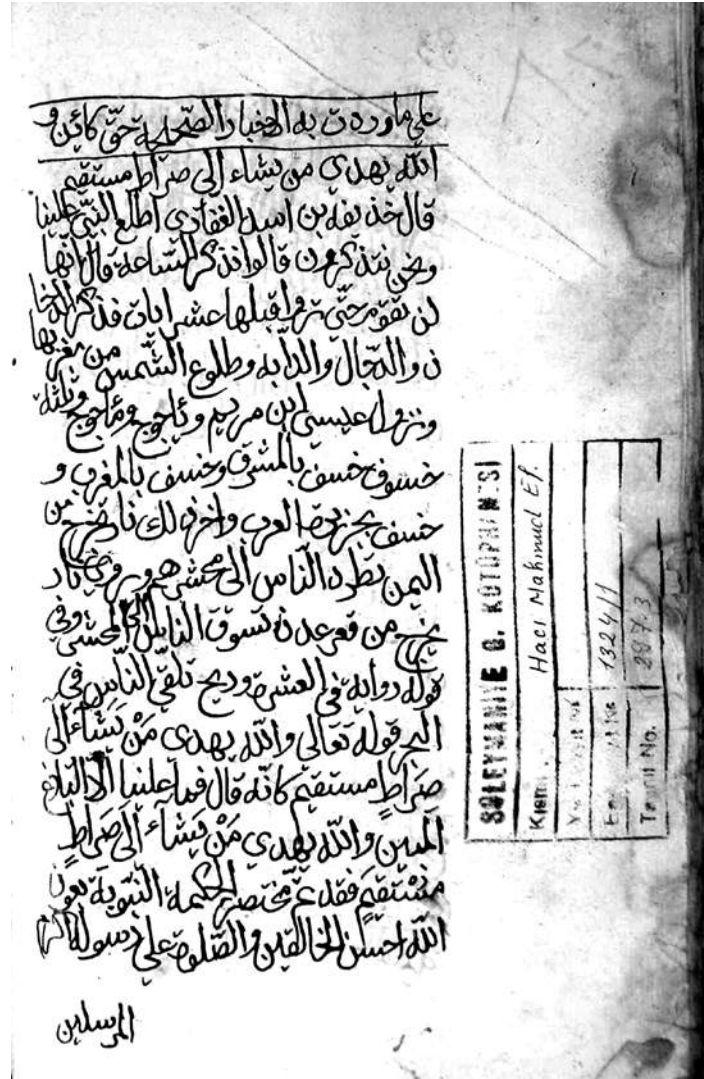 على ما وردت به الاخبار الصحيحة حق كائن و
الله يهدي من يشاء الى صراط مستقيم
قال حذيفه بن اسيد الغفاري اطلع النبي علينا
ونحن نتذكرون قالوا نذكر الساعة قال انها
لن تقوم حتى تروا قبلها عشر ايات فذكر الدخا
ن والدجال والدابه وطلوع الشمس من مغربها
ونزول عيسى ابن مريم وياجوج وماجوج وثلثة
خسوف خسف بالمشرق وخسف بالمغرب و
خسف بجزيرة العرب واخر ذلك نار تخرج من
اليمن تطرد الناس الى محشرهم ويروى نار
تخرج من قعر عدن تسوق الناس الى المحشر وفي
قوله رواية في العشرة وريح تلقي الناس في
البحر قوله تعالى والله يهدي مَنْ يَشَاءُ الى
صِرَاطٍ مستقيم كانّه قال فما علينا الا البلاغ
المبين والله يهدي مَنْ يَشَاء الى صِرَاطٍ
مُسْتَقِيمٍ فقد تم مختصر الحكمة النبوية بعون
الله احسن الخالقين والصلوة على رسوله اكرم
المرسلين
SÜLEYMANİYE G. KÜTÜPHANESİ
Kısmı Hacı Mahmud Ef.
Yeni Kayıt No
Eski Kayıt No 1324/1
Tasnif No. 297.3